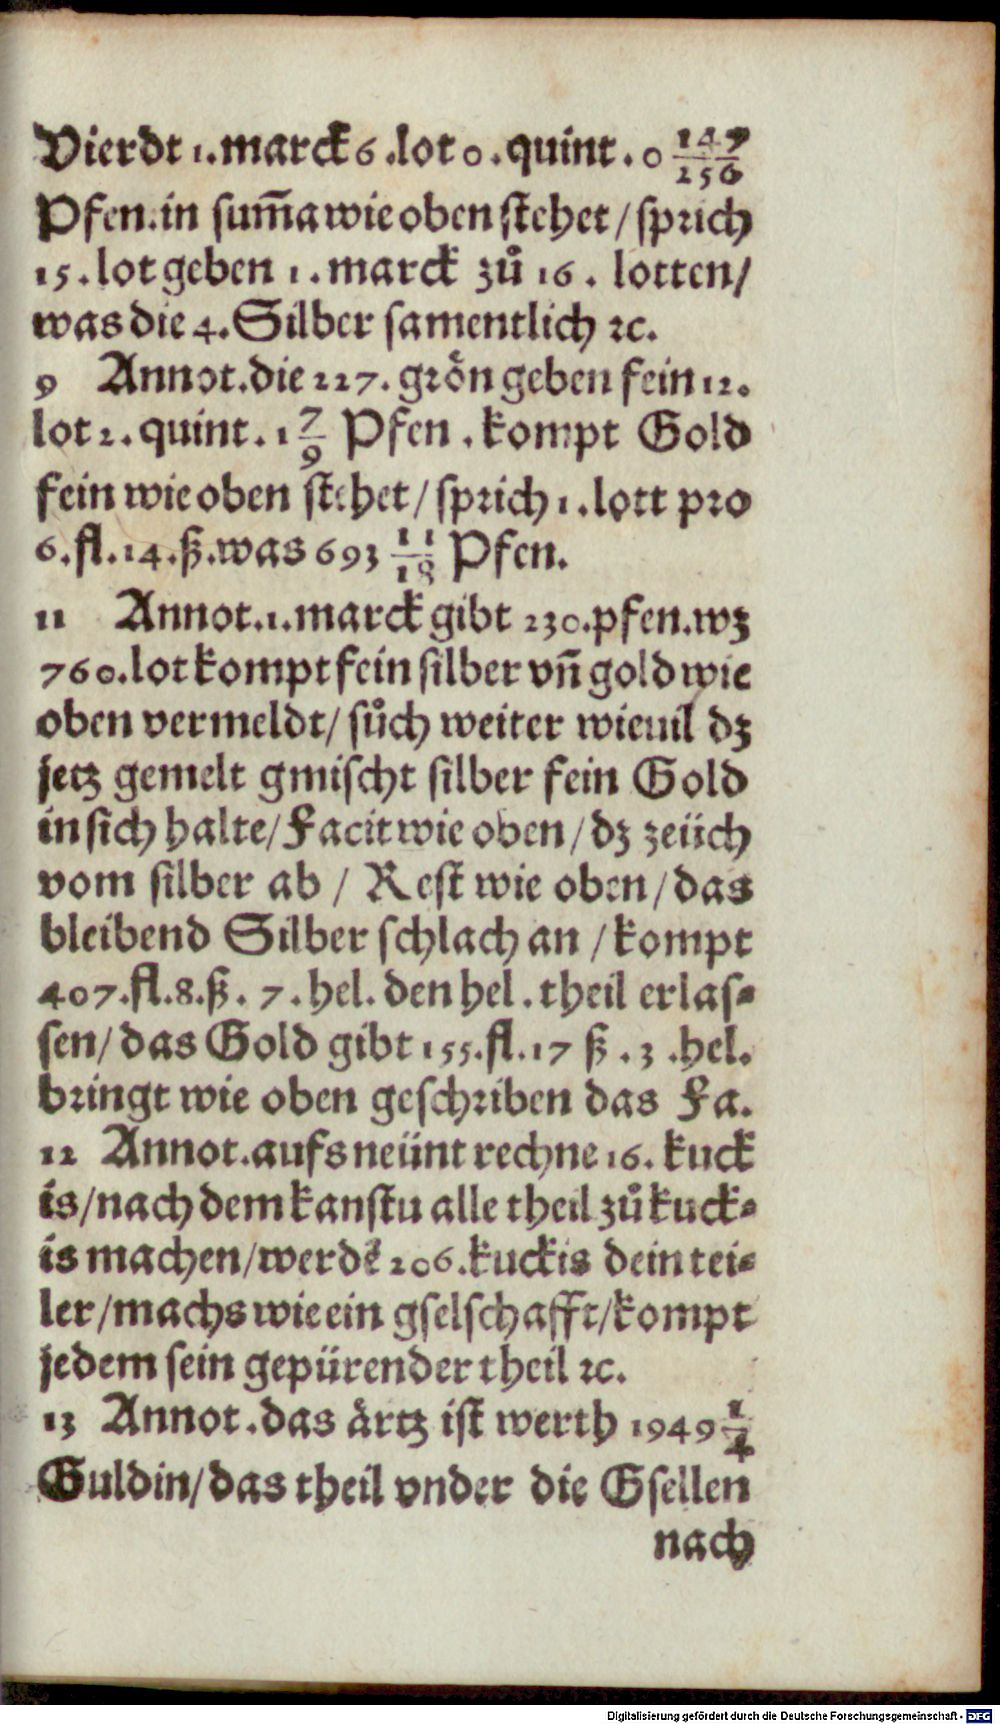 Vierdt 1. marck 6 .lot 0 . quint . 0 147/256
Pfen. in sum̃a wie oben stehet / sprich
15 . lot geben 1 . marck zů 16 . lotten /
was die 4. Silber samentlich ꝛc.
9 Annot. die 227. grön geben fein 12.
lot 2. quint. 1 7/9 Pfen . kompt Gold
fein wie oben stehet / sprich 1. lott pro
6. fl. 14. ß. was 693 11/18 Pfen.
11 Annot. 1. marck gibt 230. pfen. wz
760. lot kompt fein silber vñ gold wie
oben vermeldt / sůch weiter wieuil dz
jetz gemelt gmischt silber fein Gold
in sich halte / Facit wie oben / dz zeüch
vom silber ab / Rest wie oben / das
bleibend Silber schlach an / kompt
407. fl. 8. ß. 7 . hel. den hel . theil erlas-
sen / das Gold gibt 155. fl. 17 ß . 3 . hel.
bringt wie oben geschriben das Fa.
12 Annot. aufs neünt rechne 16. kuck
is / nach dem kanstu alle theil zů kuck-
is machen / werdẽ 206. kuckis dein tei-
ler / machs wie ein gselschafft / kompt
jedem sein gepürender theil ꝛc.
13 Annot . das ärtz ist werth 1949 1/4
Guldin / das theil vnder die Gsellen
nach
Digitalisierung gefördert durch die Deutsche Forschungsgemeinschaft - DFG